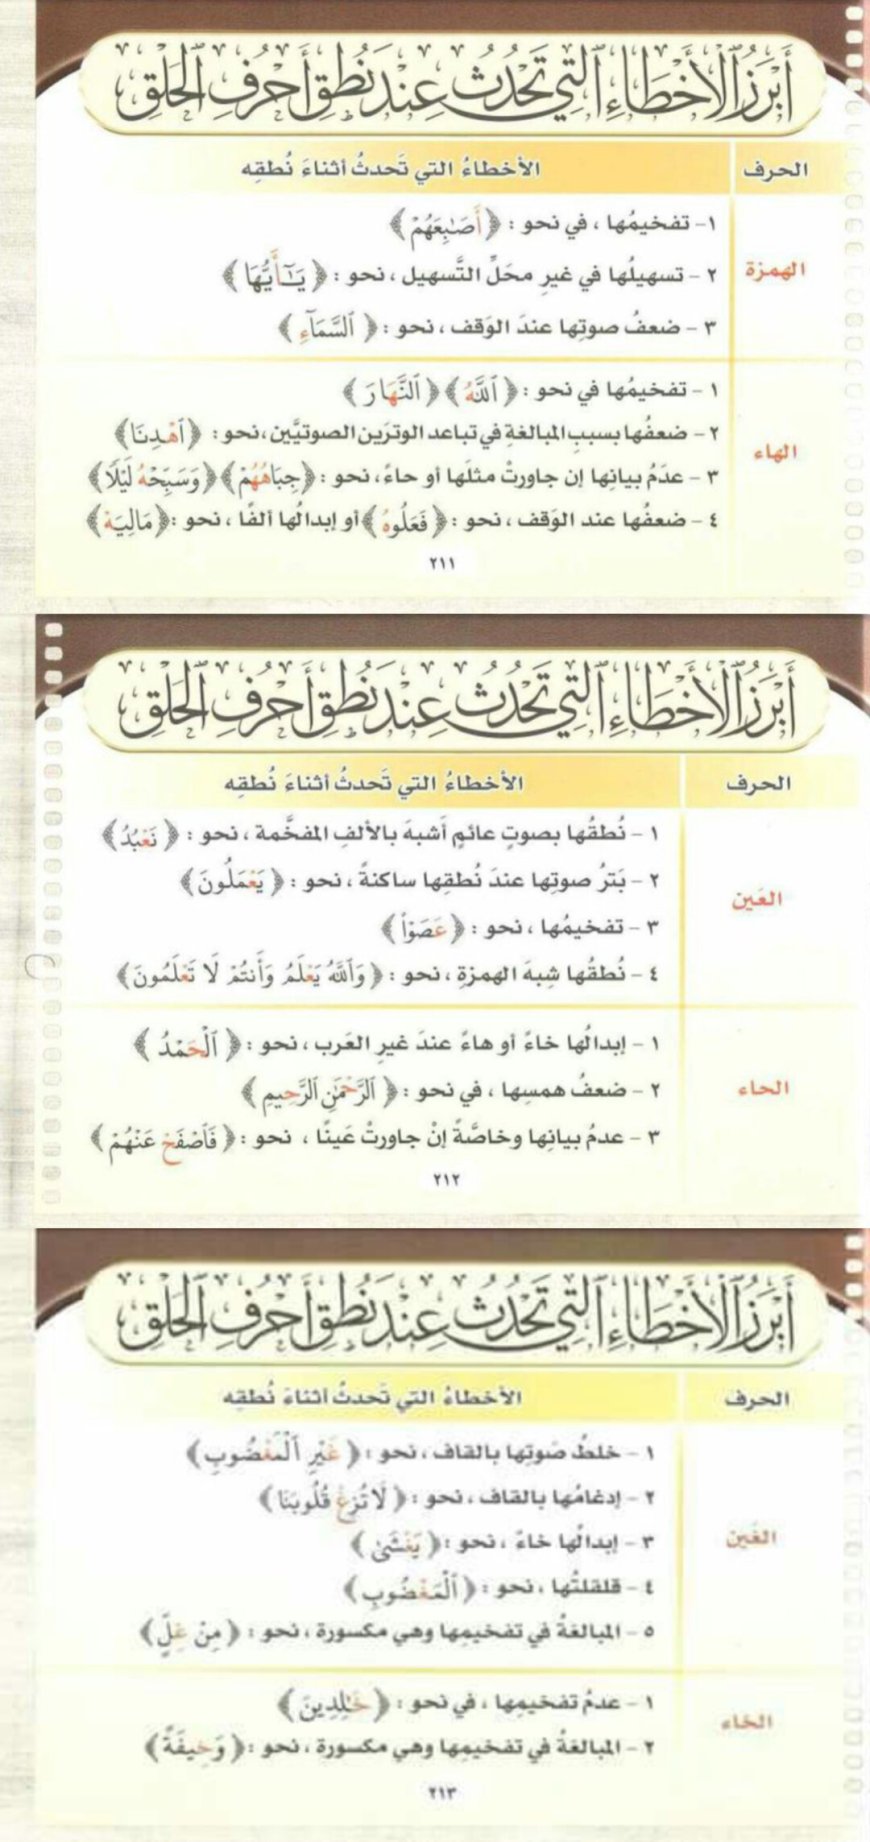 أَبْرَزُ ٱلْأَخْطَاءِ ٱلَّتِي تَحْدُثُ عِنْدَ نُطْقِ أَحْرُفِ ٱلْحَلْقِ
الحرف الأخطاءُ التي تَحدثُ أثناءَ نُطقِه
الهمزة
١- تفخيمُها ، في نحو : ﴿ أَصَٰبِعَهُمْ ﴾
٢ - تسهيلُها في غيرِ محَلِّ التَّسهيل ، نحو : ﴿ يَـٰٓأَيُّهَا ﴾
٣ - ضعفُ صوتِها عندَ الوَقف ، نحو : ﴿ ٱلسَّمَآءِ ﴾
الهاء
١ - تفخيمُها في نحو : ﴿ ٱللَّهُ ﴾ ﴿ ٱلنَّهَارَ ﴾
٢ - ضعفُها بسببِ المبالغةِ في تباعد الوترَين الصوتيَّين ،نحو : ﴿ ٱهْدِنَا ﴾
٣ - عدَمُ بيانِها إن جاورتْ مثلَها أو حاءً، نحو : ﴿ جِبَاهُهُمْ ﴾ ﴿ وَسَبِّحْهُ لَيْلًا ﴾
٤ - ضعفُها عند الوَقف ، نحو : ﴿ فَعَلُوهُ ﴾ أو إبدالُها ألفًا ، نحو : ﴿ مَالِيَهْ ﴾
٢١١
أَبْرَزُ ٱلْأَخْطَاءِ ٱلَّتِي تَحْدُثُ عِنْدَ نُطْقِ أَحْرُفِ ٱلْحَلْقِ
الحرف الأخطاءُ التي تَحدثُ أثناءَ نُطقِه
العَين
١ - نُطقُها بصوتٍ عائمٍ أشبهَ بالألفِ المفخَّمة ، نحو : ﴿ نَعْبُدُ ﴾
٢ - بَترُ صوتِها عندَ نُطقِها ساكنةً ، نحو : ﴿ يَعْمَلُونَ ﴾
٣ - تفخيمُها ، نحو : ﴿ عَصَوْا۟ ﴾
٤ - نُطقُها شِبهَ الهمزةِ ، نحو : ﴿ وَٱللَّهُ يَعْلَمُ وَأَنتُمْ لَا تَعْلَمُونَ ﴾
الحاء
١ - إبدالُها خاءً أو هاءً عندَ غيرِ العَرب ، نحو : ﴿ ٱلْحَمْدُ ﴾
٢ - ضعفُ همسِها ، في نحو : ﴿ ٱلرَّحْمَٰنِ ٱلرَّحِيمِ ﴾
٣ - عدمُ بيانِها وخاصَّةً إنْ جاورتْ عَينًا ، نحو : ﴿ فَٱصْفَحْ عَنْهُمْ ﴾
٢١٢
أَبْرَزُ ٱلْأَخْطَاءِ ٱلَّتِي تَحْدُثُ عِنْدَ نُطْقِ أَحْرُفِ ٱلْحَلْقِ
الحرف الأخطاءُ التي تَحدثُ أثناءَ نُطقِه
الغَين
١ - خلطُ صَوتِها بالقاف ، نحو : ﴿ غَيْرِ ٱلْمَغْضُوبِ ﴾
٢ - إدغامُها بالقاف ، نحو : ﴿ لَا تُزِغْ قُلُوبَنَا ﴾
٣ - إبدالُها خاءً ، نحو : ﴿ يَغْشَىٰ ﴾
٤ - قلقلتُها ، نحو : ﴿ ٱلْمَغْضُوبِ ﴾
٥ - المبالغةُ في تفخيمِها وهي مكسورة ، نحو : ﴿ مِنْ غِلٍّ ﴾
الخاء
١ - عدمُ تفخيمِها ، في نحو : ﴿ خَٰلِدِينَ ﴾
٢ - المبالغةُ في تفخيمِها وهي مكسورة ، نحو : ﴿ وَخِيفَةً ﴾
٢١٣